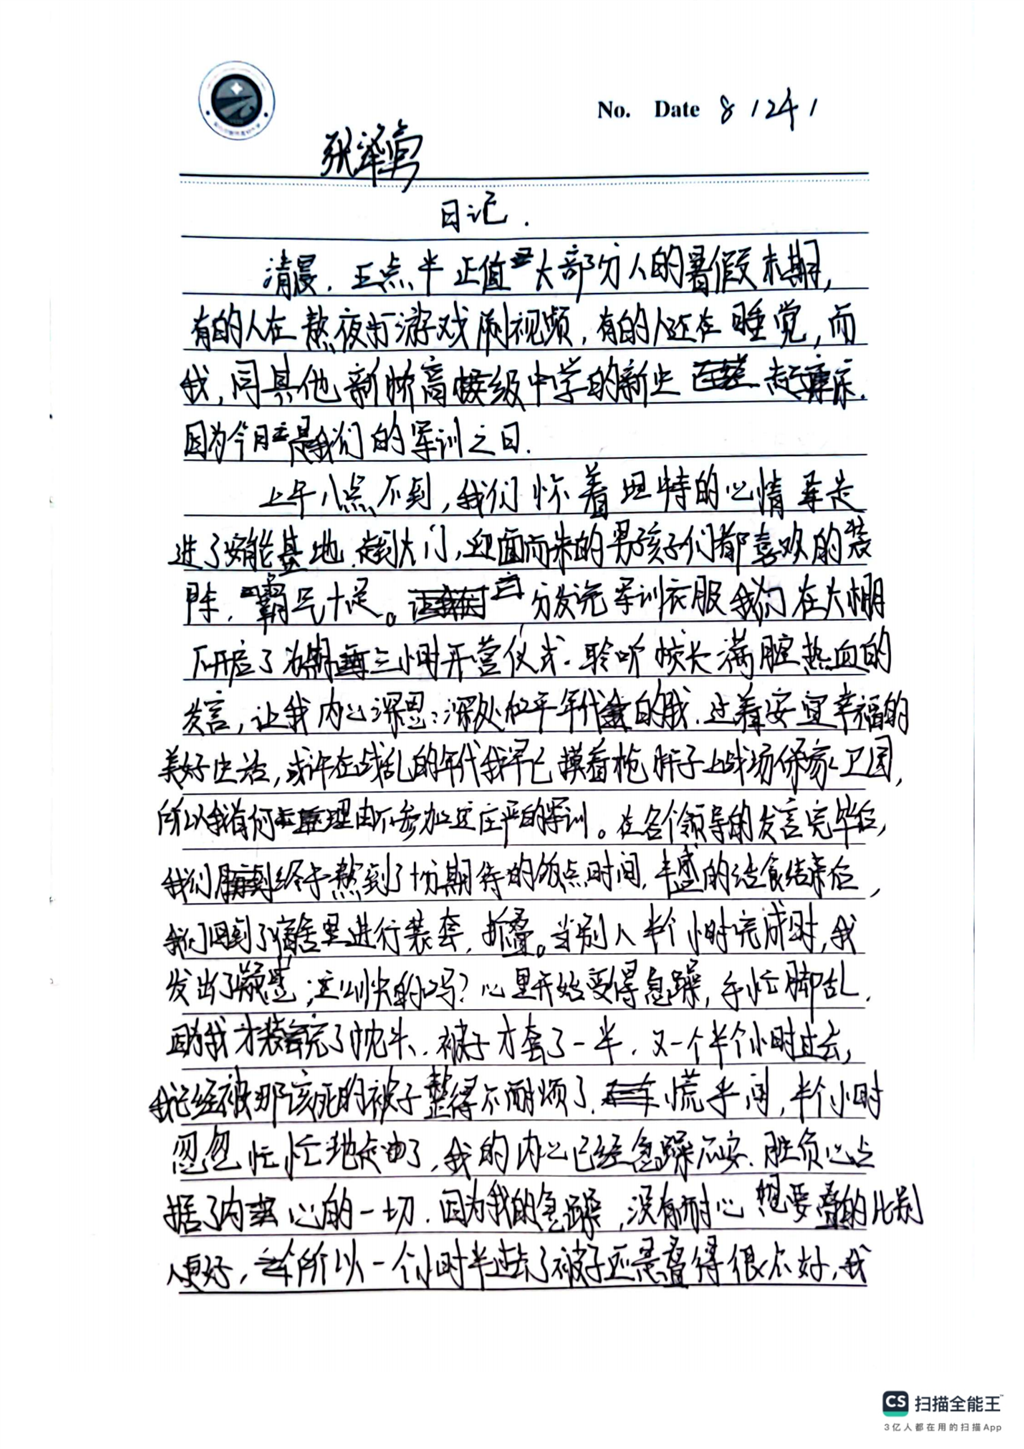 No. Date 8 / 24 /
张泽寅
日记.
清晨，五点半正值大部分人的暑假末期，
有的人在熬夜打游戏刷视频，有的人还在睡觉，而
我，同其他新桥高级中学的新生起床.
因为今日是我们的军训之日.
上午八点不到，我们怀着坦特的心情走
进了安能基地.走到大门，迎面而来的男孩子们都喜欢的装
阵，霸气十足。分发完军训衣服我们在大棚
下开启了为期三小时开营仪式.聆听校长满腔热血的
发言，让我内心深思：深处和平年代的我.过着安宜幸福的
美好生活，或许在战乱的年代我早已摸着枪杆子上战场保家卫国，
所以我有何理由不参加这庄严的军训。在各个领导的发言完毕后，
我们终于熬到了期待的饭点时间.丰盛的洁食结束后，
我们回到了宿舍里进行装套，折叠。当别人半个小时完成时，我
发出了疑惑，这么快的吗？心里开始变得急躁，手忙脚乱.
因为我才装完了枕头.被子才套了一半.又一个半个小时过去，
我已经被那该死的被子整得不耐烦了.慌乎间，半个小时
忽忽忙忙地走了，我的内心已经急躁不安.胜负心占
据了内心的一切.因为我的急躁，没有耐心想要叠的比别
人更好，所以一个小时半过去了被子还是叠得很不好，我
CS 扫描全能王
3亿人都在用的扫描App